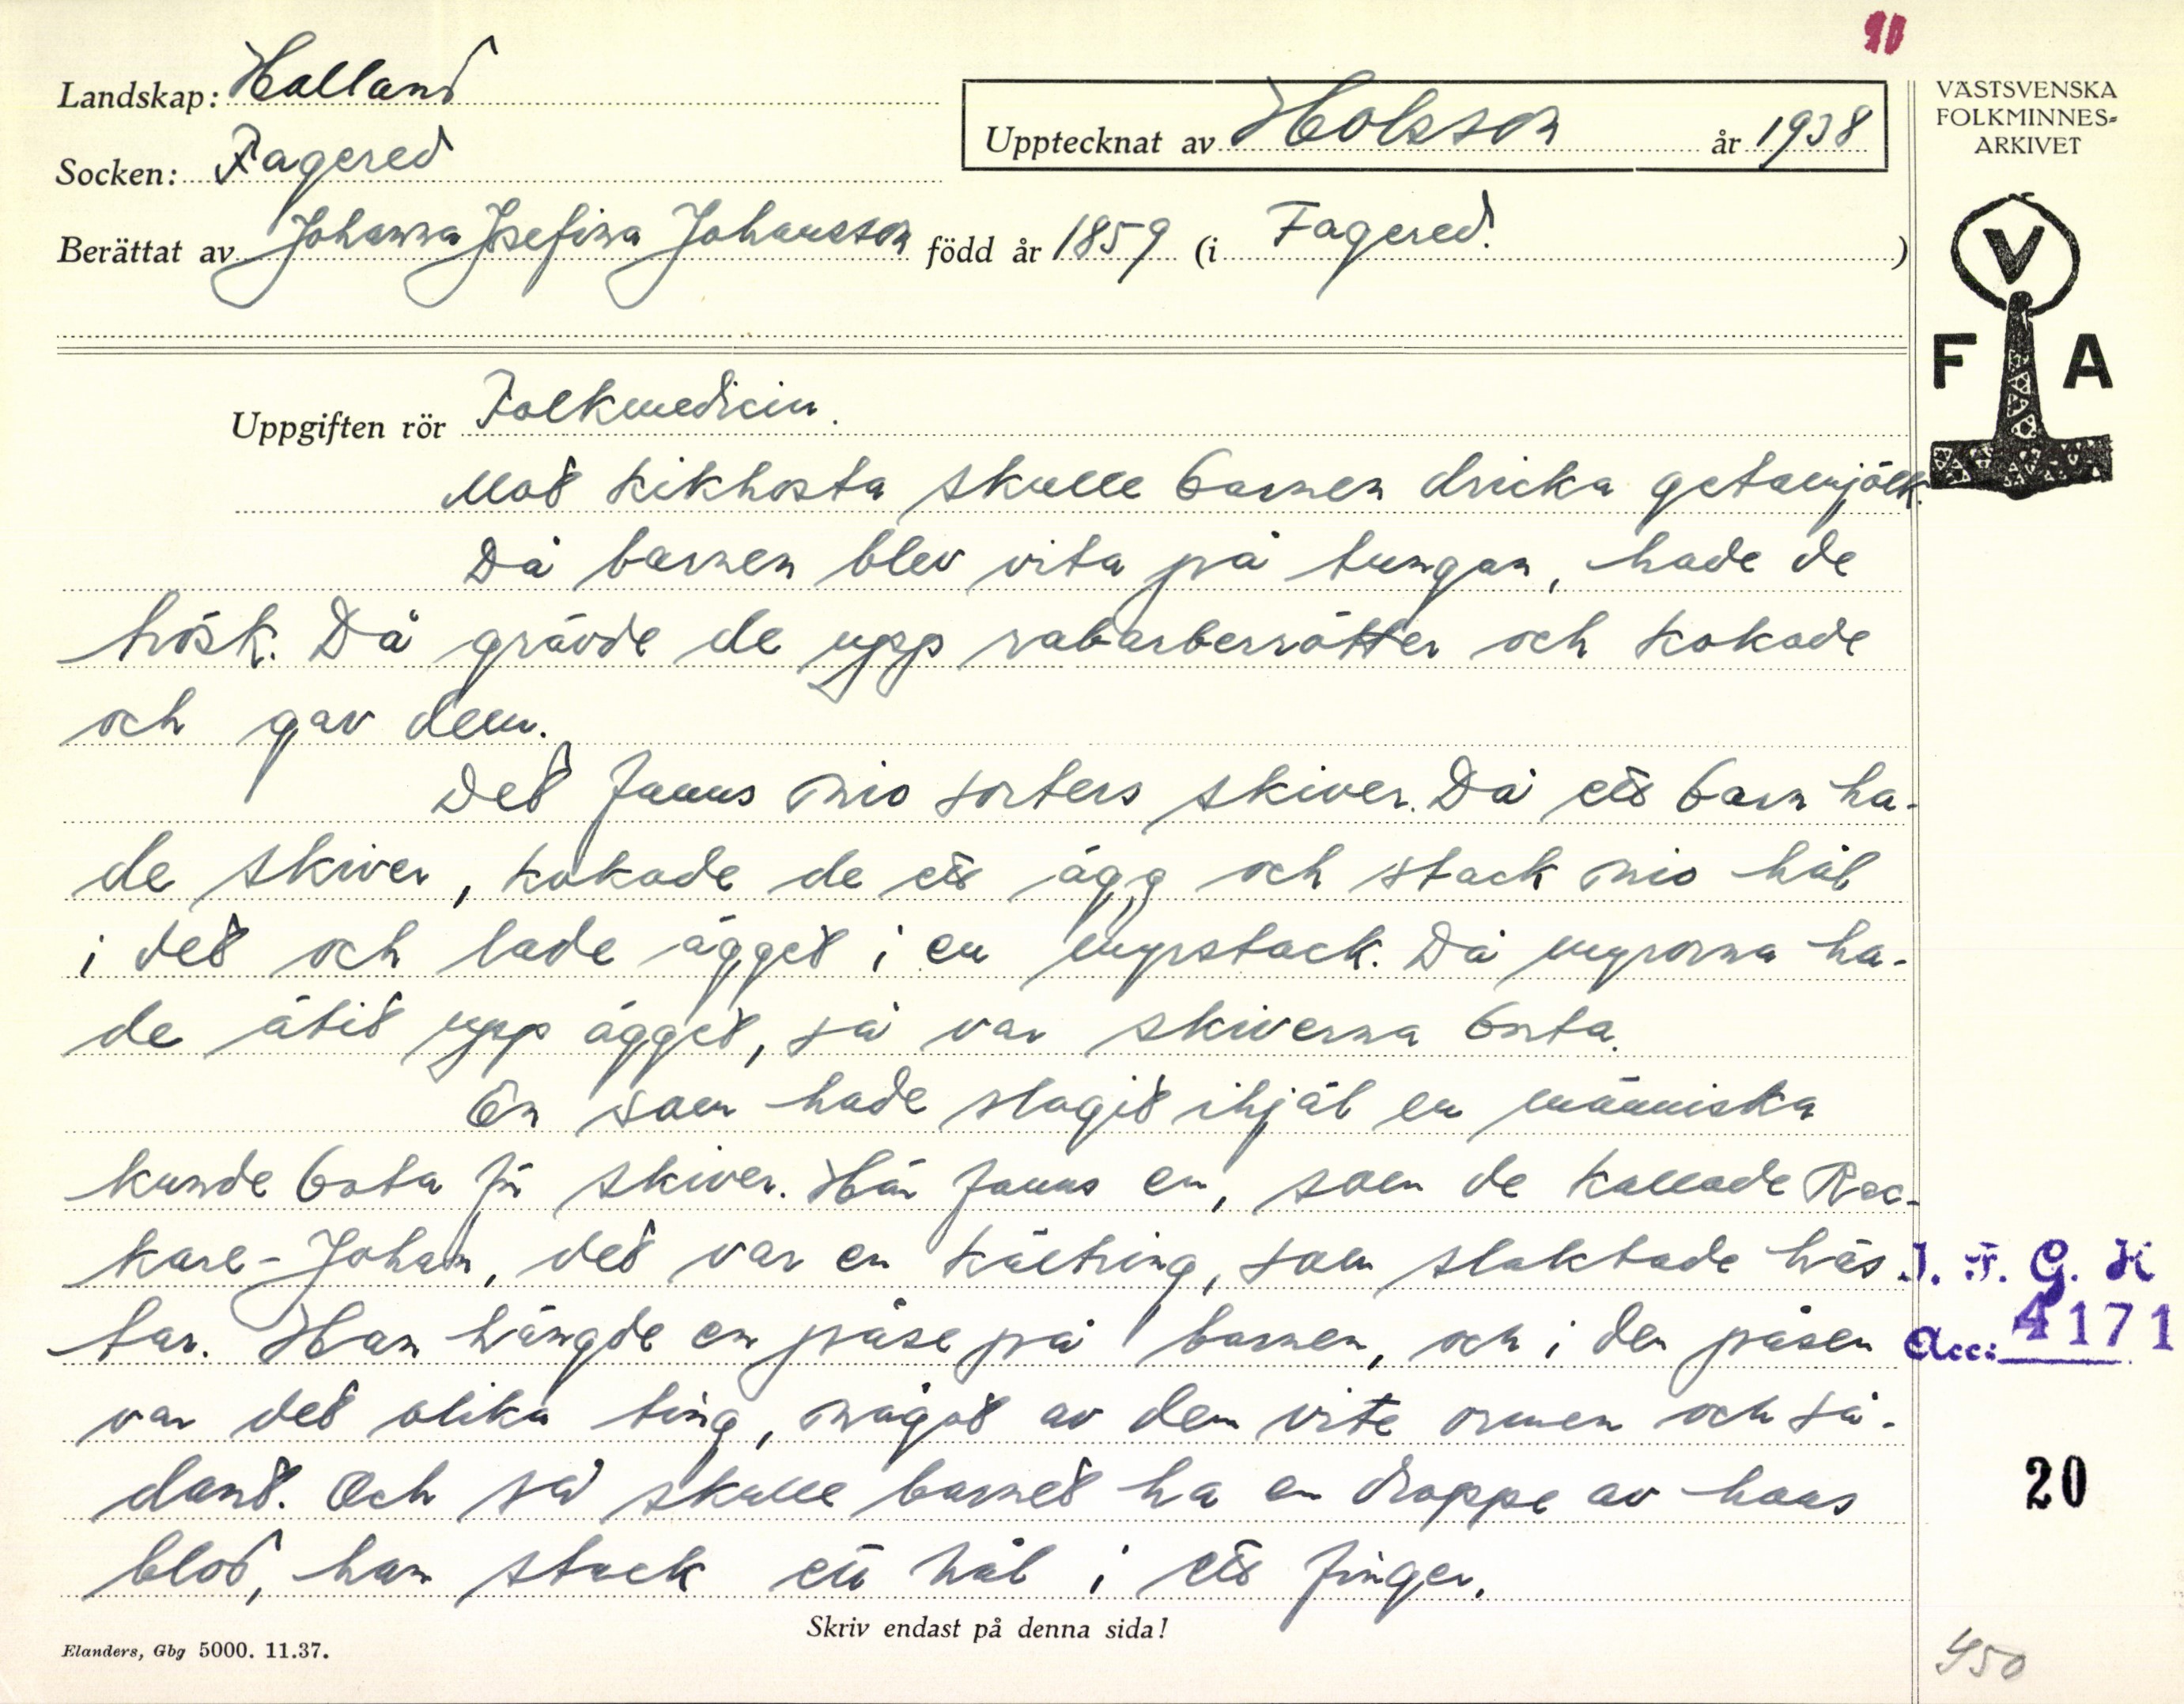 90
Landskap: Halland
Socken: Fagered
Upptecknat av HOlsson år 1938
Berättat av Johanna Josefina Johansson född år 1859 (i Fagered. )
VÄSTSVENSKA
FOLKMINNES-
ARKIVET
V
F A
Uppgiften rör Folkmedicin.
Mot kikhosta skulle barnen dricka getamjölk.
Då barnen blev vita på tungan, hade de
trösk. Då grävde de upp rabarberrötter och kokade
och gav dem.
Det fanns nio sorters skiver. Då ett barn ha-
de skiver, kokade de ett ägg och stack nio hål
i det och lade ägget i en myrstack. Då myrorna ha-
de ätit upp ägget, så var skiverna borta.
En som hade slagit ihjäl en människa
kunde bota för skiver. Här fanns en, som de kallade Rac-
kare-Johan, det var en kältring, som slaktade häs
tar. Han hängde en påse på barnen, och i den påsen
var det olika ting, något av den vite ormen och så-
dant. Och så skulle barnet ha en droppe av hans
blod, han stack ett hål i ett finger.
I. F. G. H
Acc: 4171
20
Skriv endast på denna sida!
Elanders, Gbg 5000. 11.37.
450